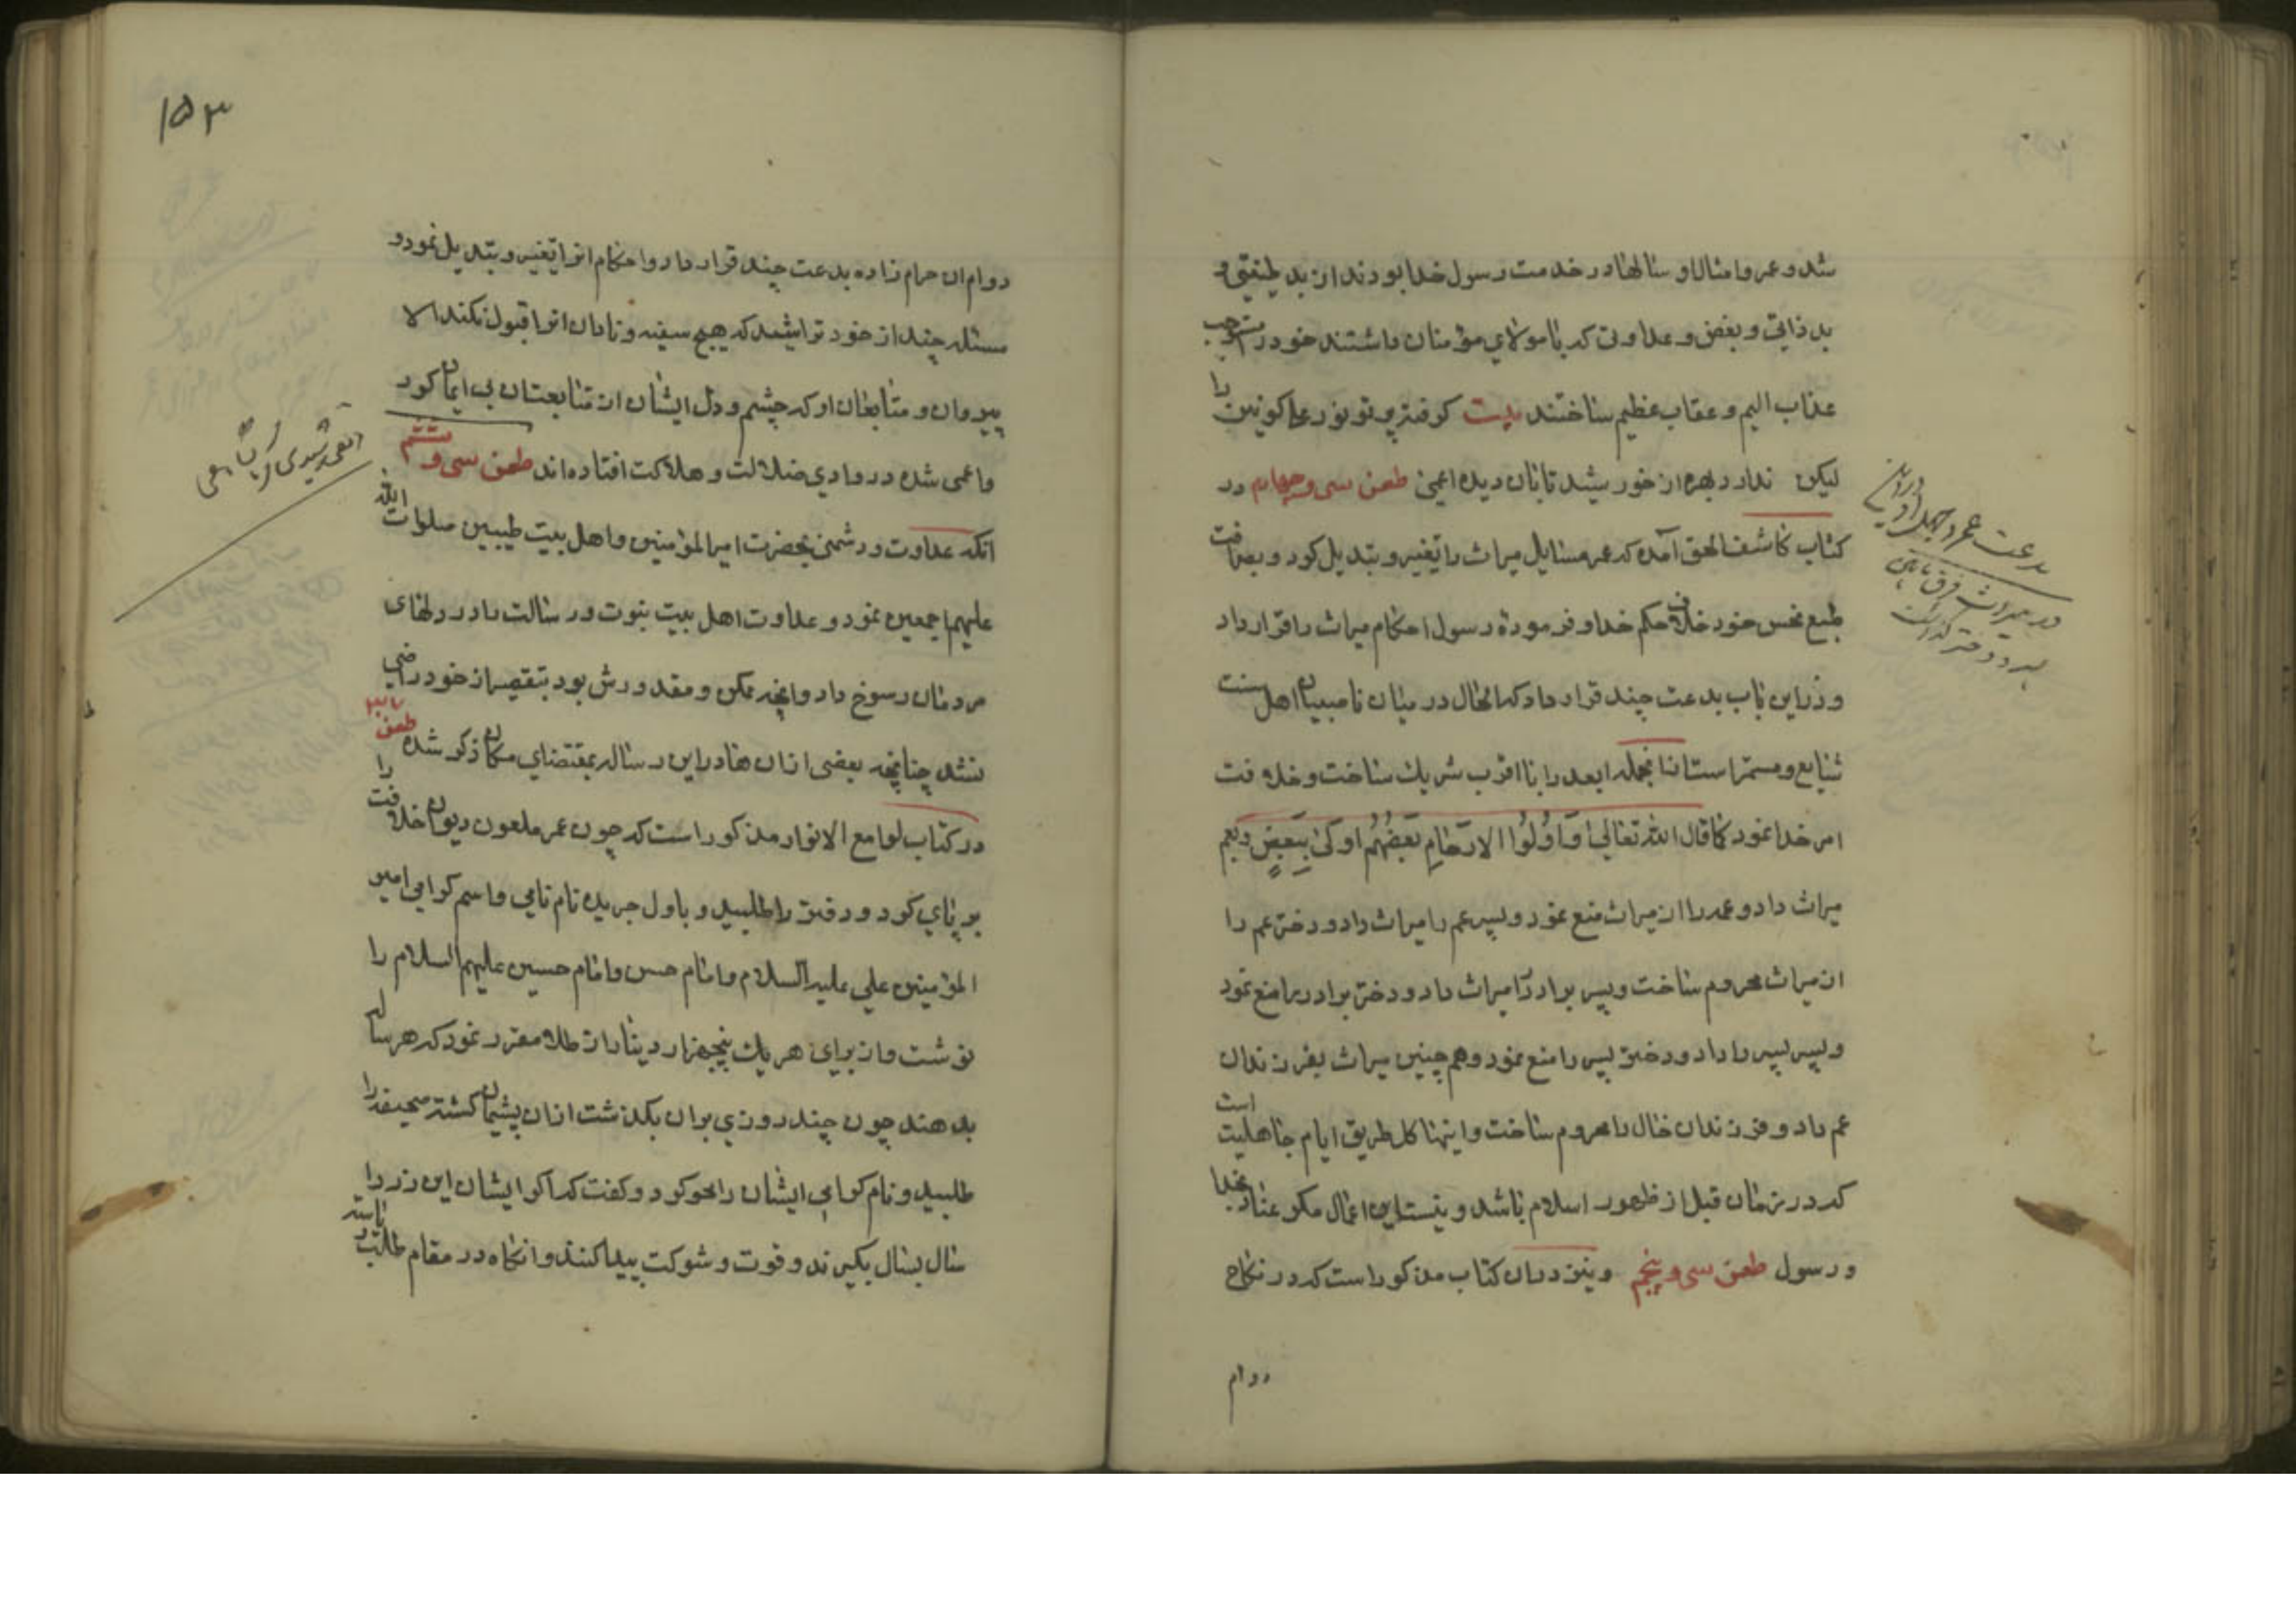 شد و عمر و امثال او سالها در خدمت رسول خدا بودند از بد طینتی و
بد ذاتی و بغض و عداوتی که با مولای مؤمنان داشتند خود را مستوجب
عذاب الیم و عقاب عظیم ساختند بیت کرفته پرتو نور علی کونین را
لیکن ندارد بهره از خورشید تابان دیده اعمی طعن سی و چهارم در
کتاب کاشف الحق آمده که عمر مسایل میراث را تغییر و تبدیل کرد و بصرافت
طبع نحس خود خلاف حکم خدا و فرموده رسول احکام میراث را قرار داد
و در این باب بدعت چند قرار داد که الحال در میان ناصبیان اهل سنت
شایع و مستمر است از انجمله ابعد را با اقرب شریک ساخت و خلافت
امر خدا نمود کما قال الله تعالی و اولوا الارحام بعضهم اولی ببعض و بعم
میراث داد و عمه را از میراث منع نمود و پسر عم را میراث داد و دختر عم را
از میراث محروم ساخت و پسر برادر را میراث داد و دختر برادر را منع نمود
و پسر پسر را داد و دختر پسر را منع نمود و همچنین میراث بفرزندان
عم داد و فرزندان خال را محروم ساخت و اینها کل طریق ایام جاهلیت است
که در زمان قبل از ظهور اسلام باشد و نیست این اعمال مکر عناد بخدا
و رسول طعن سی و پنجم و نیز در ان کتاب مذکور است که در نکاح
دوام
بدعت عمر
در میراث
۱۵۳
دوام ان حرام زاده بدعت چند قرار داد و احکام انرا تغییر و تبدیل نمود و
مسئله چند از خود تراشید که هیچ سفیه و نادان انرا قبول نکند الا
پیروان و متابعان او که چشم و دل ایشان از متابعت ان بی ایمان کور
و اعمی شده در وادی ضلالت و هلاکت افتاده اند طعن سی و ششم
انکه عداوت و دشمنی بحضرت امیر المؤمنین و اهل بیت طیبین صلوات الله
علیهم اجمعین نمود و عداوت اهل بیت نبوت و رسالت را در دلهای
مردمان رسوخ داد و انچه ممکن و مقدورش بود بتقصیر از خود راضی
نشد چنانچه بعضی از ان ها در این رساله بمقتضای مکان ذکر شده طعن
در کتاب لوامع الانوار مذکور است که چون عمر ملعون دیوان خلافت را
بر پای کرد و دفتر را طلبید و باول جریده نام نامی و اسم کرامی امیر
المؤمنین علی علیه السلام و امام حسن و امام حسین علیهم السلام را
نوشت و از برای هر یک پنجهزار دینار از طلا مقرر نمود که هر ساله
بدهند چون چند روزی بر ان بکذشت از ان پشیمان کشته صحیفه را
طلبید و نام کرامی ایشان را محو کرد و کفت که اکر ایشان این زر را
سال بسال بکیرند و قوت و شوکت پیدا کنند و انکاه در مقام طلب